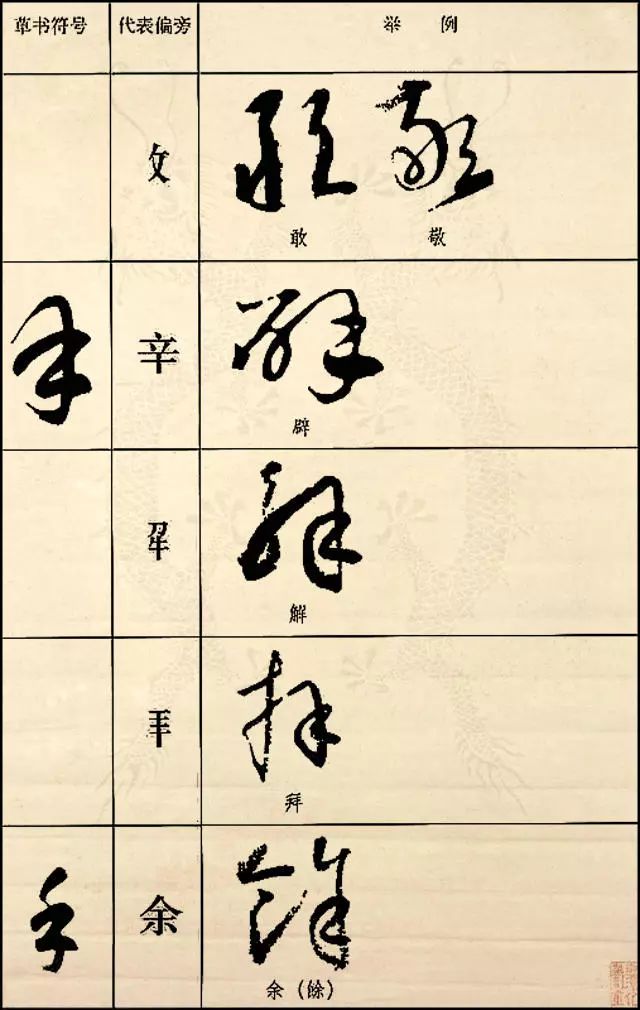 草书符号 代表偏旁 举例
攵
敢 敬
辛
辟
解
拜
余
余（餘）